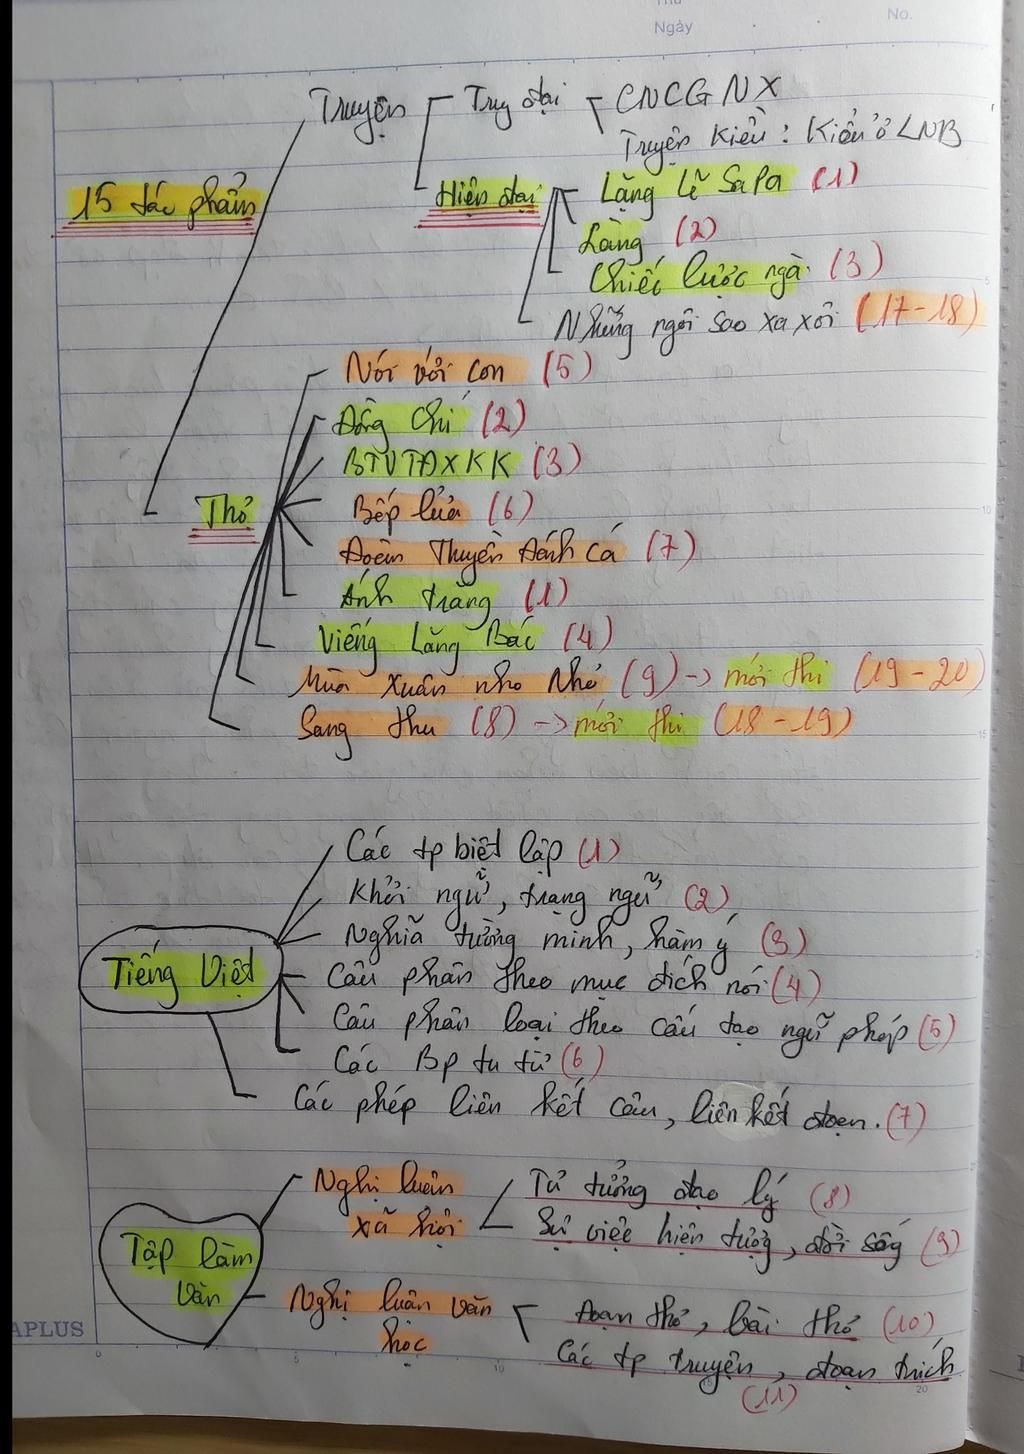 Thứ
Ngày
No.
Truyện Trug đại CNCGNX
Truyện Kiều : Kiều ở LNB
15 tác phẩm
Hiện đại Lặng lẽ SaPa (1)
Làng (2)
Chiếc lược ngà (3)
Những ngôi sao xa xôi (17-18)
Nói với con (5)
Đồng chí (2)
BTVTĐXKK (3)
Thơ Bếp lửa (6)
Đoàn Thuyền Đánh Cá (7)
Ánh trăng (1)
Viếng Lăng Bác (4)
Mùa Xuân nho Nhỏ (9) -> mới thi (19-20)
Sang thu (8) -> mới thi (18-19)
Các tp biệt lập (1)
Khởi ngữ, trạng ngữ (2)
Nghĩa tường minh, hàm ý (3)
Tiếng Việt Câu phân theo mục đích nói (4)
Câu phân loại theo cấu tạo ngữ pháp (5)
Các Bp tu từ (6)
Các phép liên kết câu, liên kết đoạn. (7)
Nghị luận xã hội Tư tưởng đạo lý (8)
Sự việc hiện tượng, đời sống (9)
Tập làm văn
Nghị luận văn học Đoạn thơ, bài thơ (10)
Các tp truyện, đoạn trích (11)
APLUS